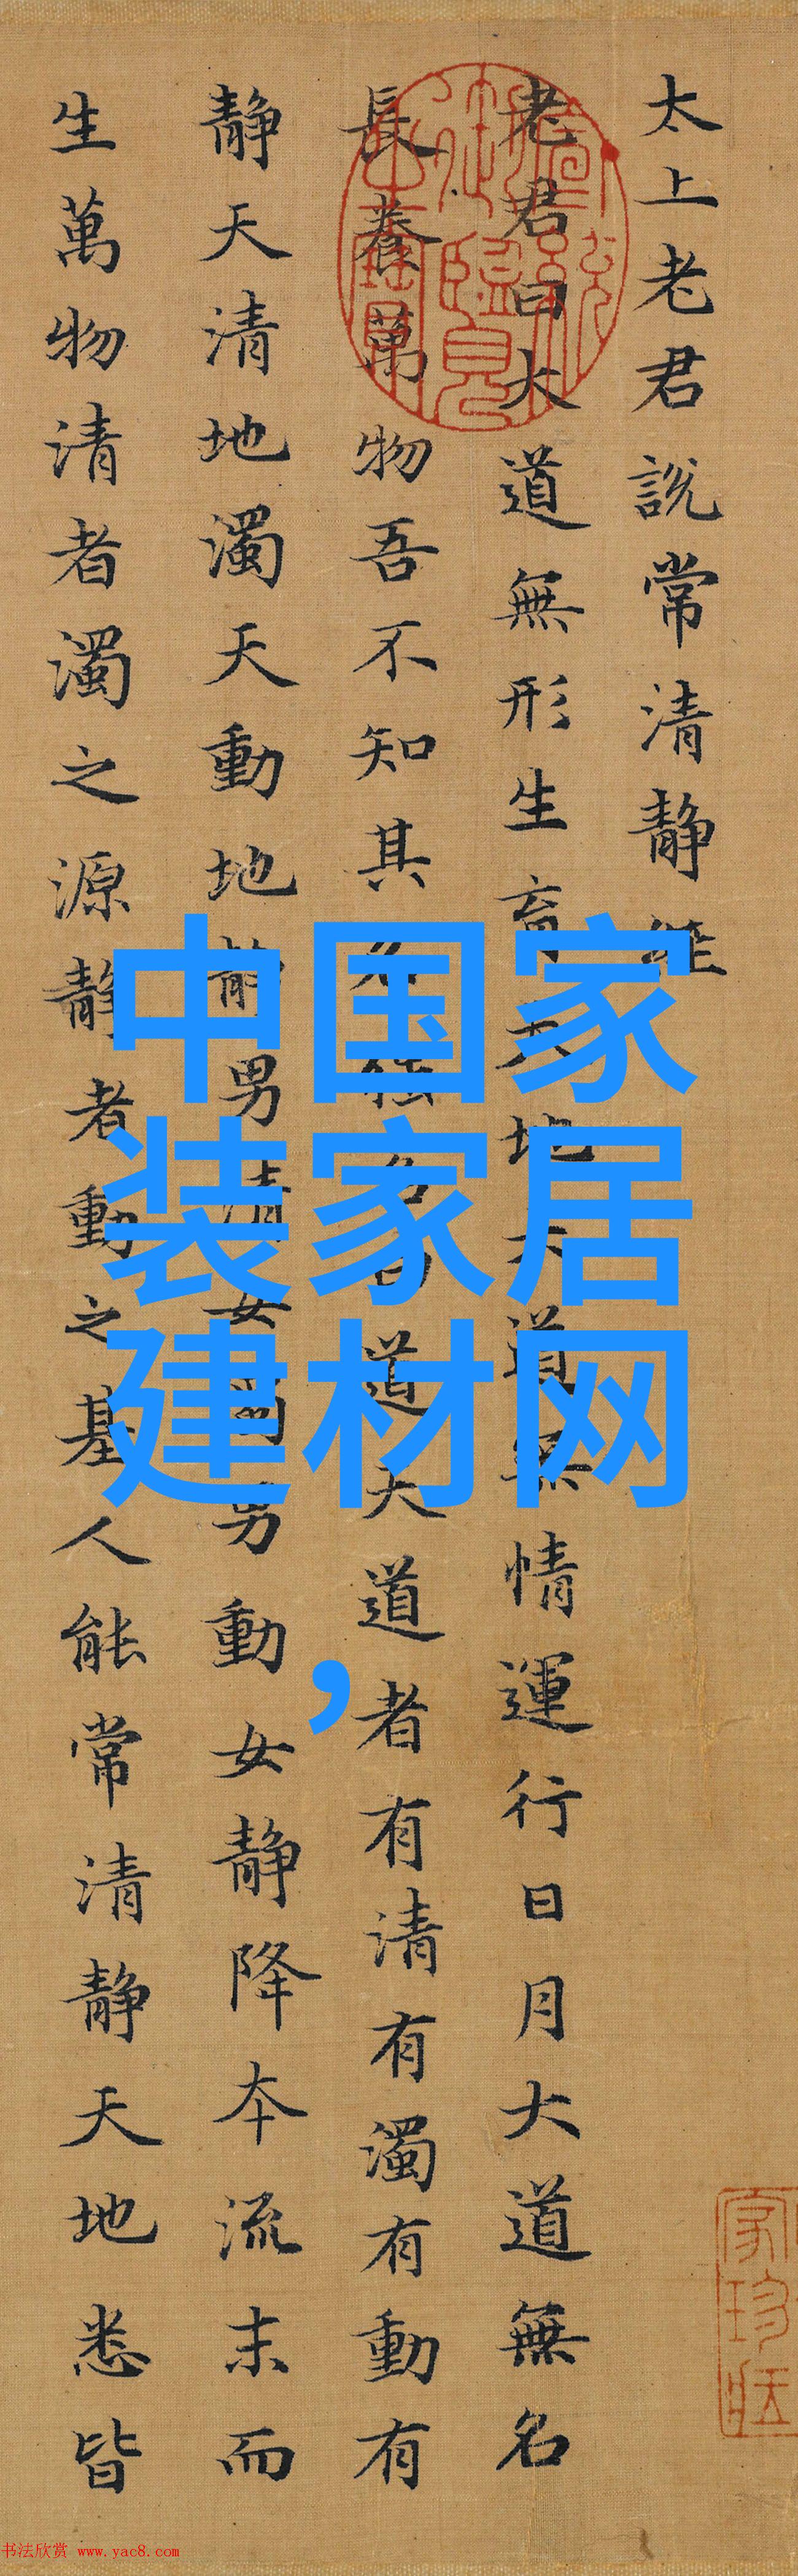 太上老君說常清靜經
老君曰大道無形生育天地大道無情運行日月大道無名
長養萬物吾不知其名強名曰道夫道者有清有濁有動有
靜天清地濁天動地靜男清女濁男動女靜降本流末而
生萬物清者濁之源靜者動之基人能常清靜天地悉皆
中国家
装家居
建材网
,
宣統御覽之寶
书法欣赏 www.yac8.com